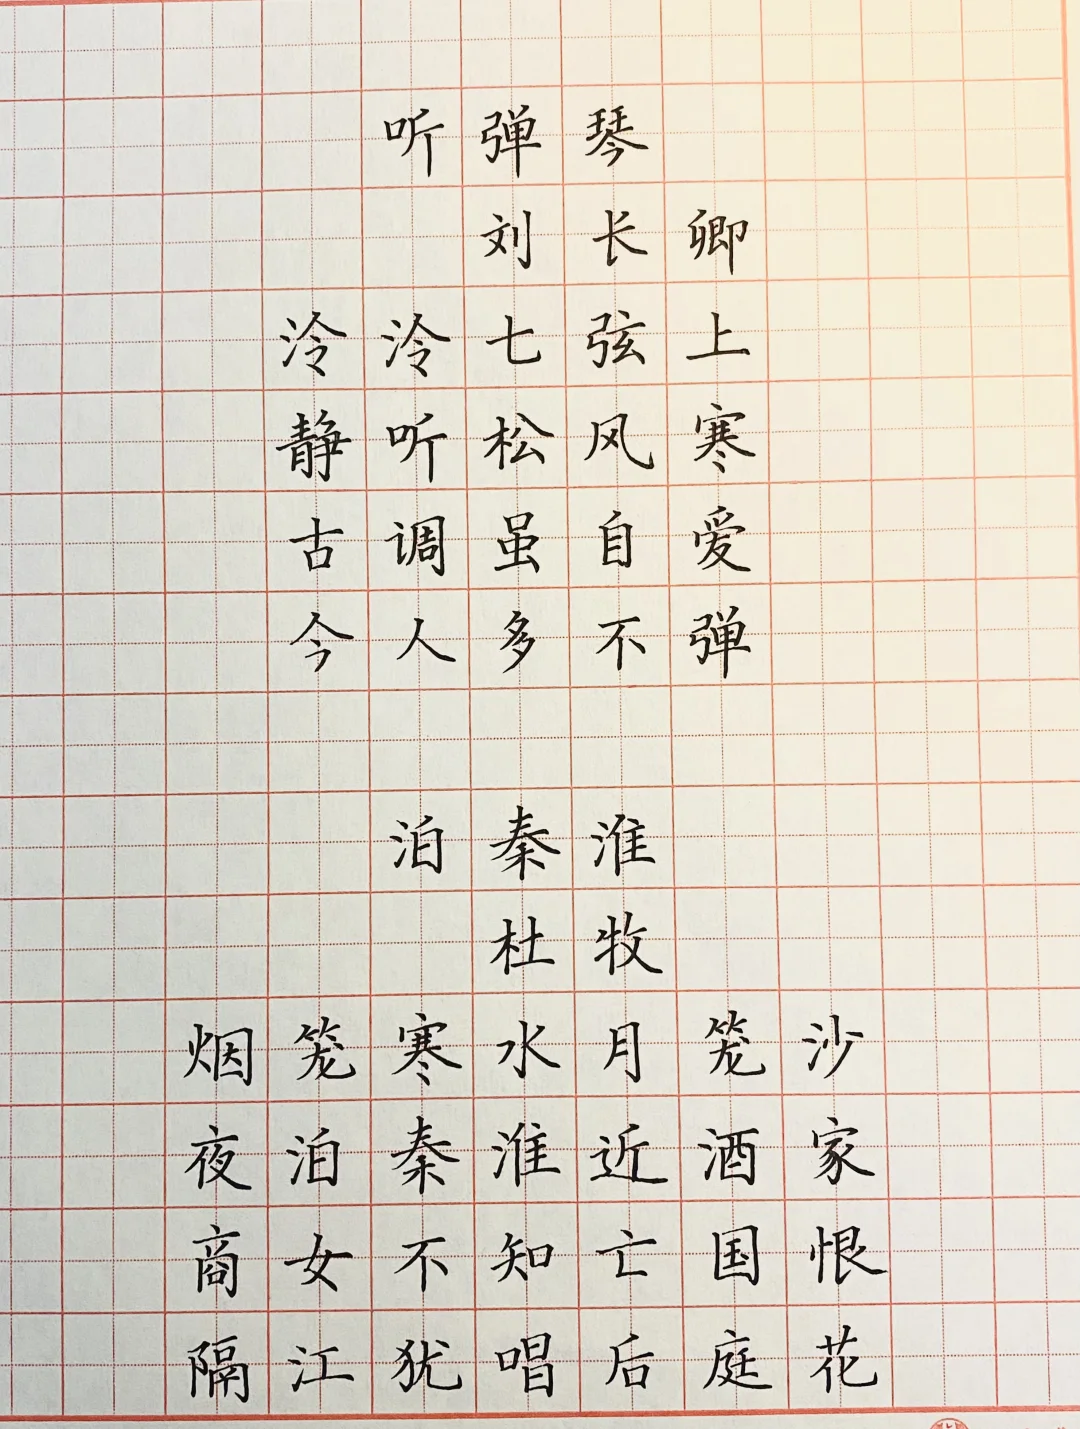 听弹琴
刘长卿
泠泠七弦上
静听松风寒
古调虽自爱
今人多不弹
泊秦淮
杜牧
烟笼寒水月笼沙
夜泊秦淮近酒家
商女不知亡国恨
隔江犹唱后庭花